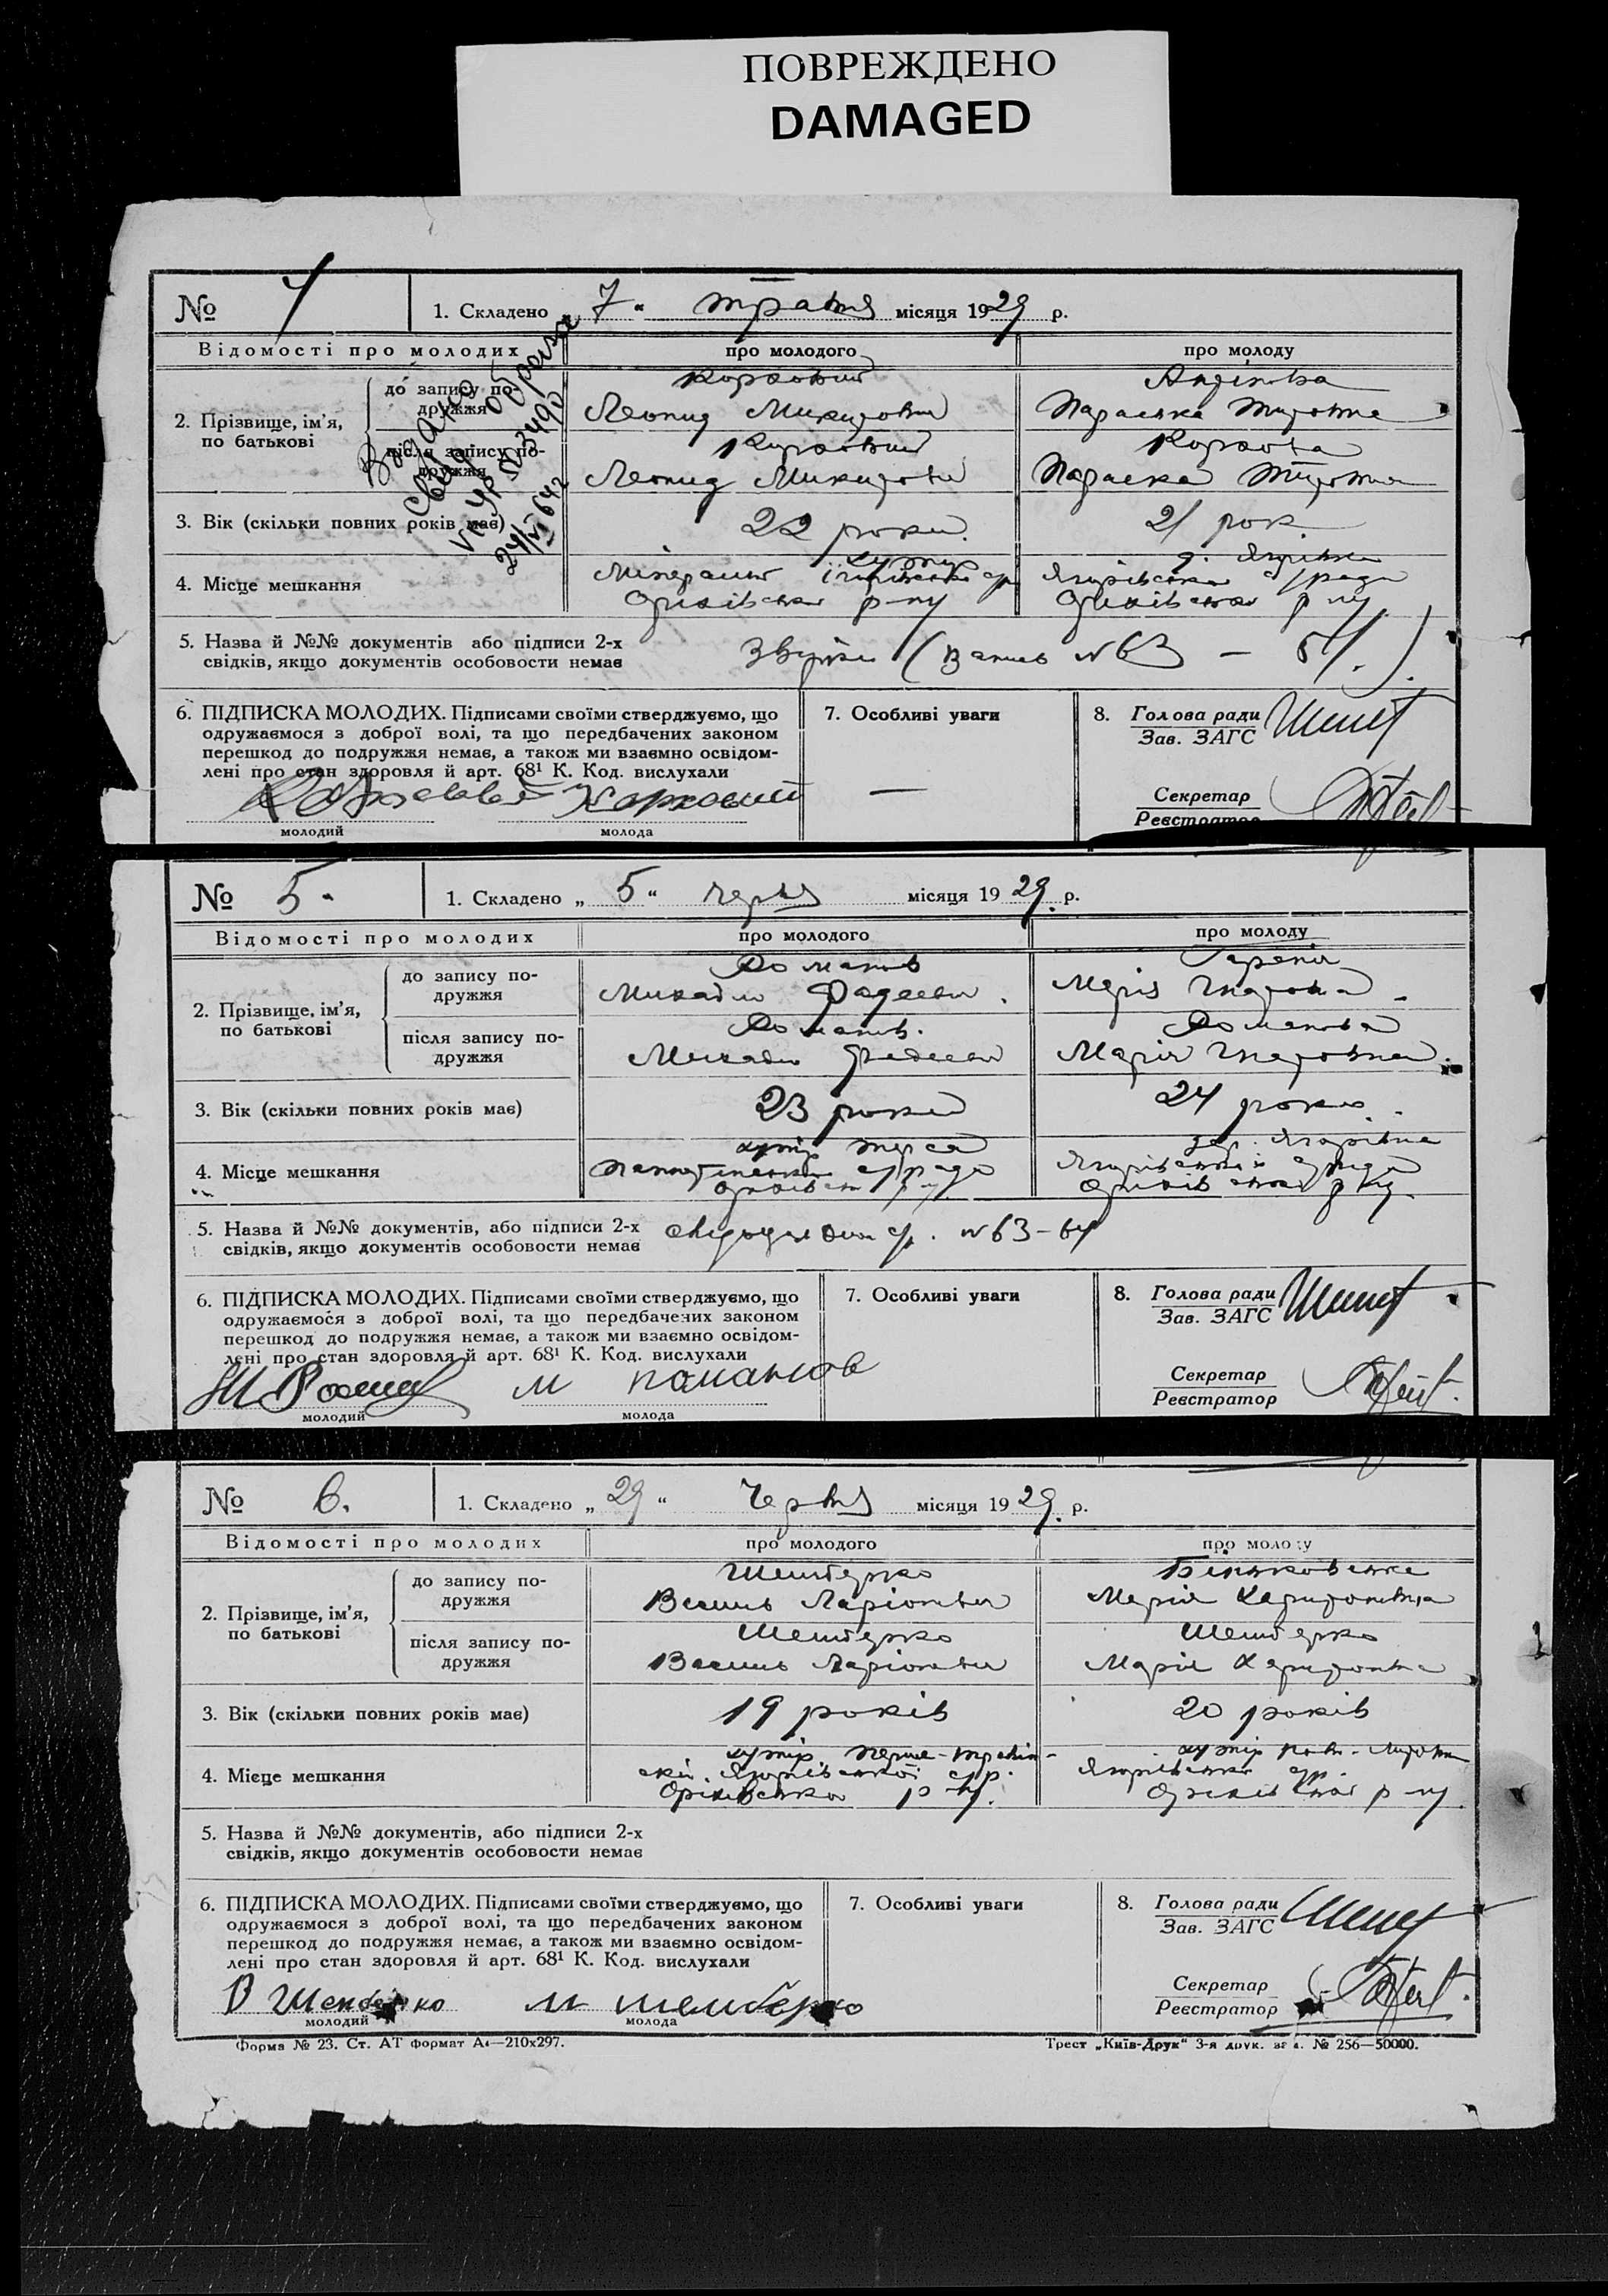 ПОВРЕЖДЕНО
DAMAGED
№ 4
1. Складено 7 " травня місяця 1929 р.
Відомості про молодих
про молодого
про молоду
2. Прізвище, ім'я, по батькові
до запису подружжя
Корховий
Леонид Микитович
Параска Титовна
після запису подружжя
Корховий
Леонид Микитович
Корхова
Параска Титовна
3. Вік (скільки повних років має)
22 роки.
21 рок
4. Місце мешкання
хутір
Оріхівськ р-ну
д. Ягорівка
Ягорівська с/рада
Оріхівськ р-ну
Видано
24/VI 64 г
5. Назва й №№ документів або підписи 2-х
свідків, якщо документів особовости немає
(запись №63 –
6. ПІДПИСКА МОЛОДИХ. Підписами своїми стверджуємо, що
одружаємося з доброї волі, та що передбачених законом
перешкод до подружжя немає, а також ми взаємно освідом-
лені про стан здоровля й арт. 68¹ К. Код. вислухали
Корховий
молодий
молода
7. Особливі уваги
—
8. Голова ради
Зав. ЗАГС
Секретар
Реєстратор
№ 5.
1. Складено „ 5 " червня місяця 1929. р.
Відомості про молодих
про молодого
про молоду
2. Прізвище, ім'я,
по батькові
до запису по-
дружжя
Романов
Михайло Фадеевич.
Марія
після запису по-
дружжя
Романов.
Михайло Фадеевич
Романова
Марія
3. Вік (скільки повних років має)
23 роки
24 роки.
4. Місце мешкання
хутір Терса
с/рада
Оріхівськ р-ну
дер. Ягорівка
Ягорівської с/ради
Оріхівськ р-ну.
5. Назва й №№ документів, або підписи 2-х
свідків, якщо документів особовости немає
№63–64
6. ПІДПИСКА МОЛОДИХ. Підписами своїми стверджуємо, що
одружаємося з доброї волі, та що передбачених законом
перешкод до подружжя немає, а також ми взаємно освідом-
лені про стан здоровля й арт. 68¹ К. Код. вислухали
молодий
молода
7. Особливі уваги
8. Голова ради
Зав. ЗАГС
Секретар
Реєстратор
№ 6.
1. Складено „ 29 " Червня місяця 1929. р.
Відомості про молодих
про молодого
про молоду
2. Прізвище, ім'я,
по батькові
до запису по-
дружжя
Шемберко
Василь Ларіонович
Марія Харитоновна
після запису по-
дружжя
Шемберко
Василь Ларіонович
Шемберко
Марія Харитоновна
3. Вік (скільки повних років має)
19 років
20 років
4. Місце мешкання
хутір Перше-Травен-
ськ. Ягорівської с/р.
Оріхівська р-ну.
хутір
Ягорівської с/р.
Оріхівськ р-ну
5. Назва й №№ документів, або підписи 2-х
свідків, якщо документів особовости немає
6. ПІДПИСКА МОЛОДИХ. Підписами своїми стверджуємо, що
одружаємося з доброї волі, та що передбачених законом
перешкод до подружжя немає, а також ми взаємно освідом-
лені про стан здоровля й арт. 68¹ К. Код. вислухали
В Шемберко
М шемберко
молодий
молода
7. Особливі уваги
8. Голова ради
Зав. ЗАГС
Секретар
Реєстратор
Форма № 23. Ст. АТ формат А4—210x297.
Трест „Київ-Друк" 3-я друк. зак. № 256—50000.